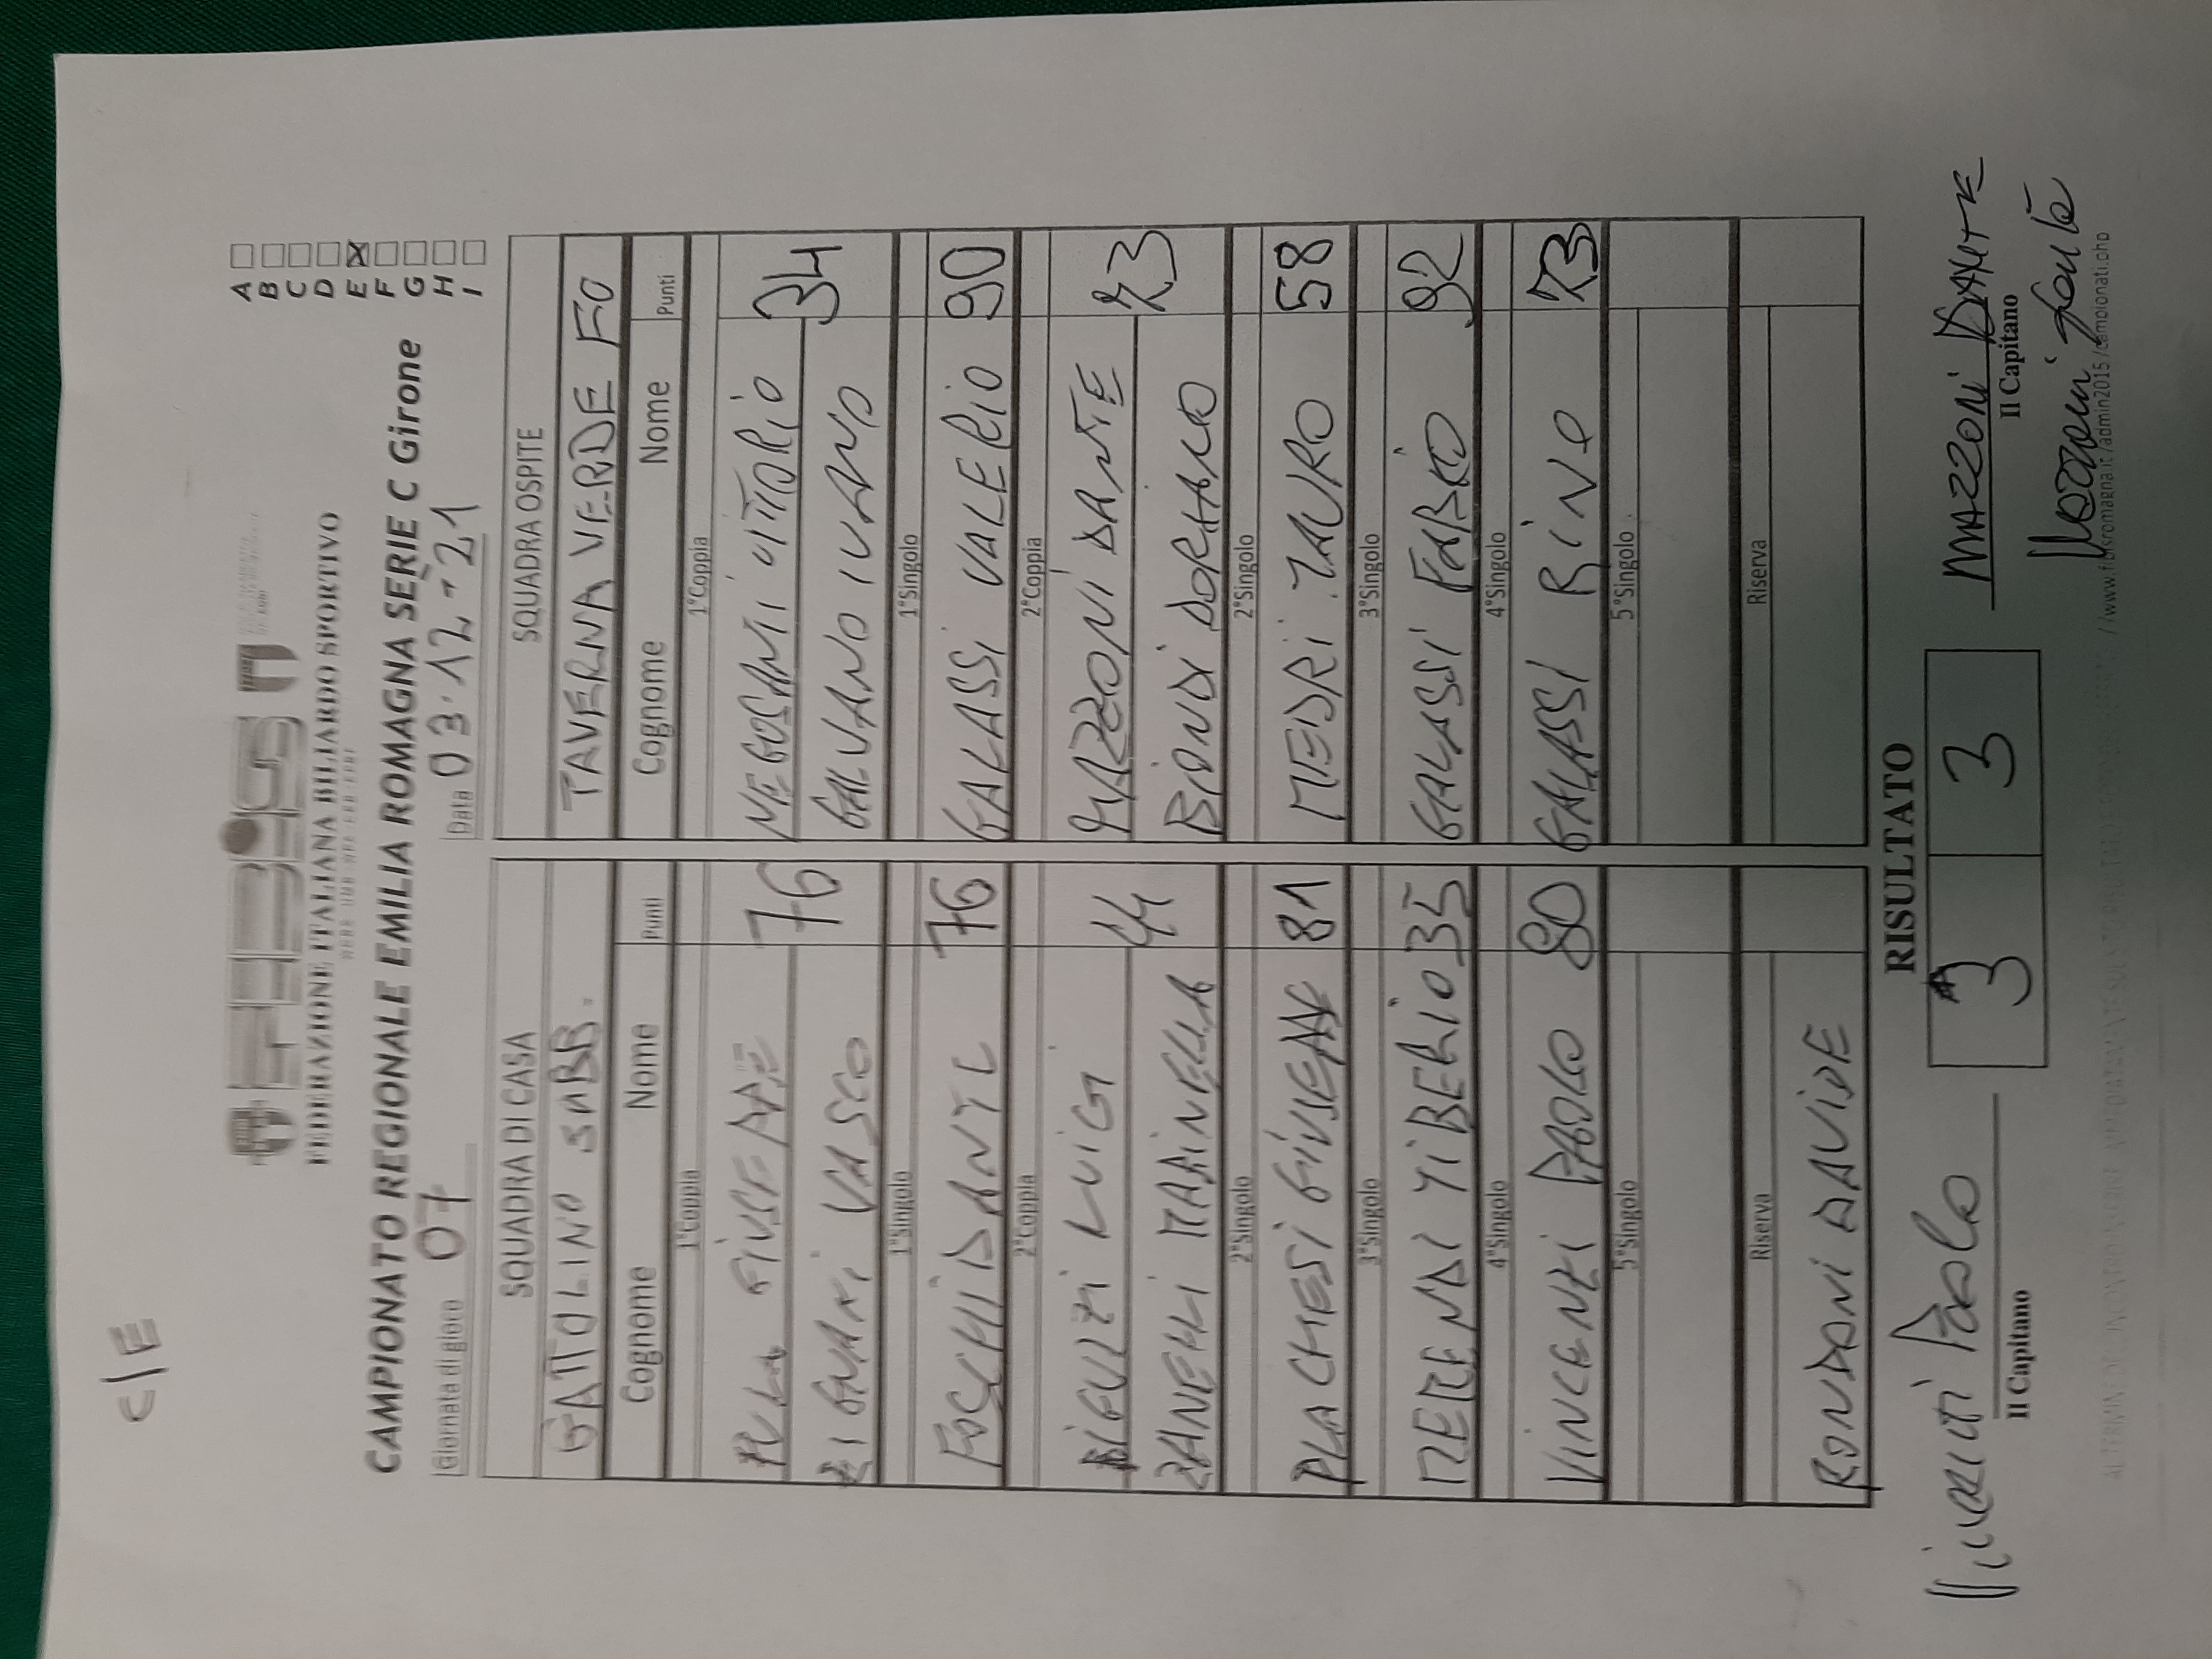 C/E
FEDERAZIONE ITALIANA BILIARDO SPORTIVO
CAMPIONATO REGIONALE EMILIA ROMAGNA SERIE C Girone
A
B
C
D
E X
F
G
H
I
Giornata di gioco 07
Data 03.12-21
SQUADRA DI CASA SQUADRA OSPITE
GATTOLINO SABB. TAVERNA VERDE FO
Cognome Nome Punti Cognome Nome Punti
1°Coppia 1°Coppia
GIUSEPPE 76 NEGOSANTI VITTORIO 34
VASCO GALVANO IVANO
1°Singolo 1°Singolo
FOSCHI DANTE 76 GALASSI VALERIO 90
2°Coppia 2°Coppia
BIGUZZI LUIGI 44 MAZZONI DANTE 73
ZANELLI MARINELLA BIONDI DORIANO
2°Singolo 2°Singolo
PLACHESI GIUSEPPE 81 MEDRI LAURO 58
3°Singolo 3°Singolo
MERENDI TIBERIO 35 GALASSI FABIO 92
4°Singolo 4°Singolo
VINCENZI PAOLO 80 GALASSI RINO 73
5°Singolo 5°Singolo
Riserva Riserva
RONDONI DAVIDE
RISULTATO
Vincenzi Paolo 3 3 MAZZONI DANTE
Il Capitano Il Capitano
Mazzoni Dante